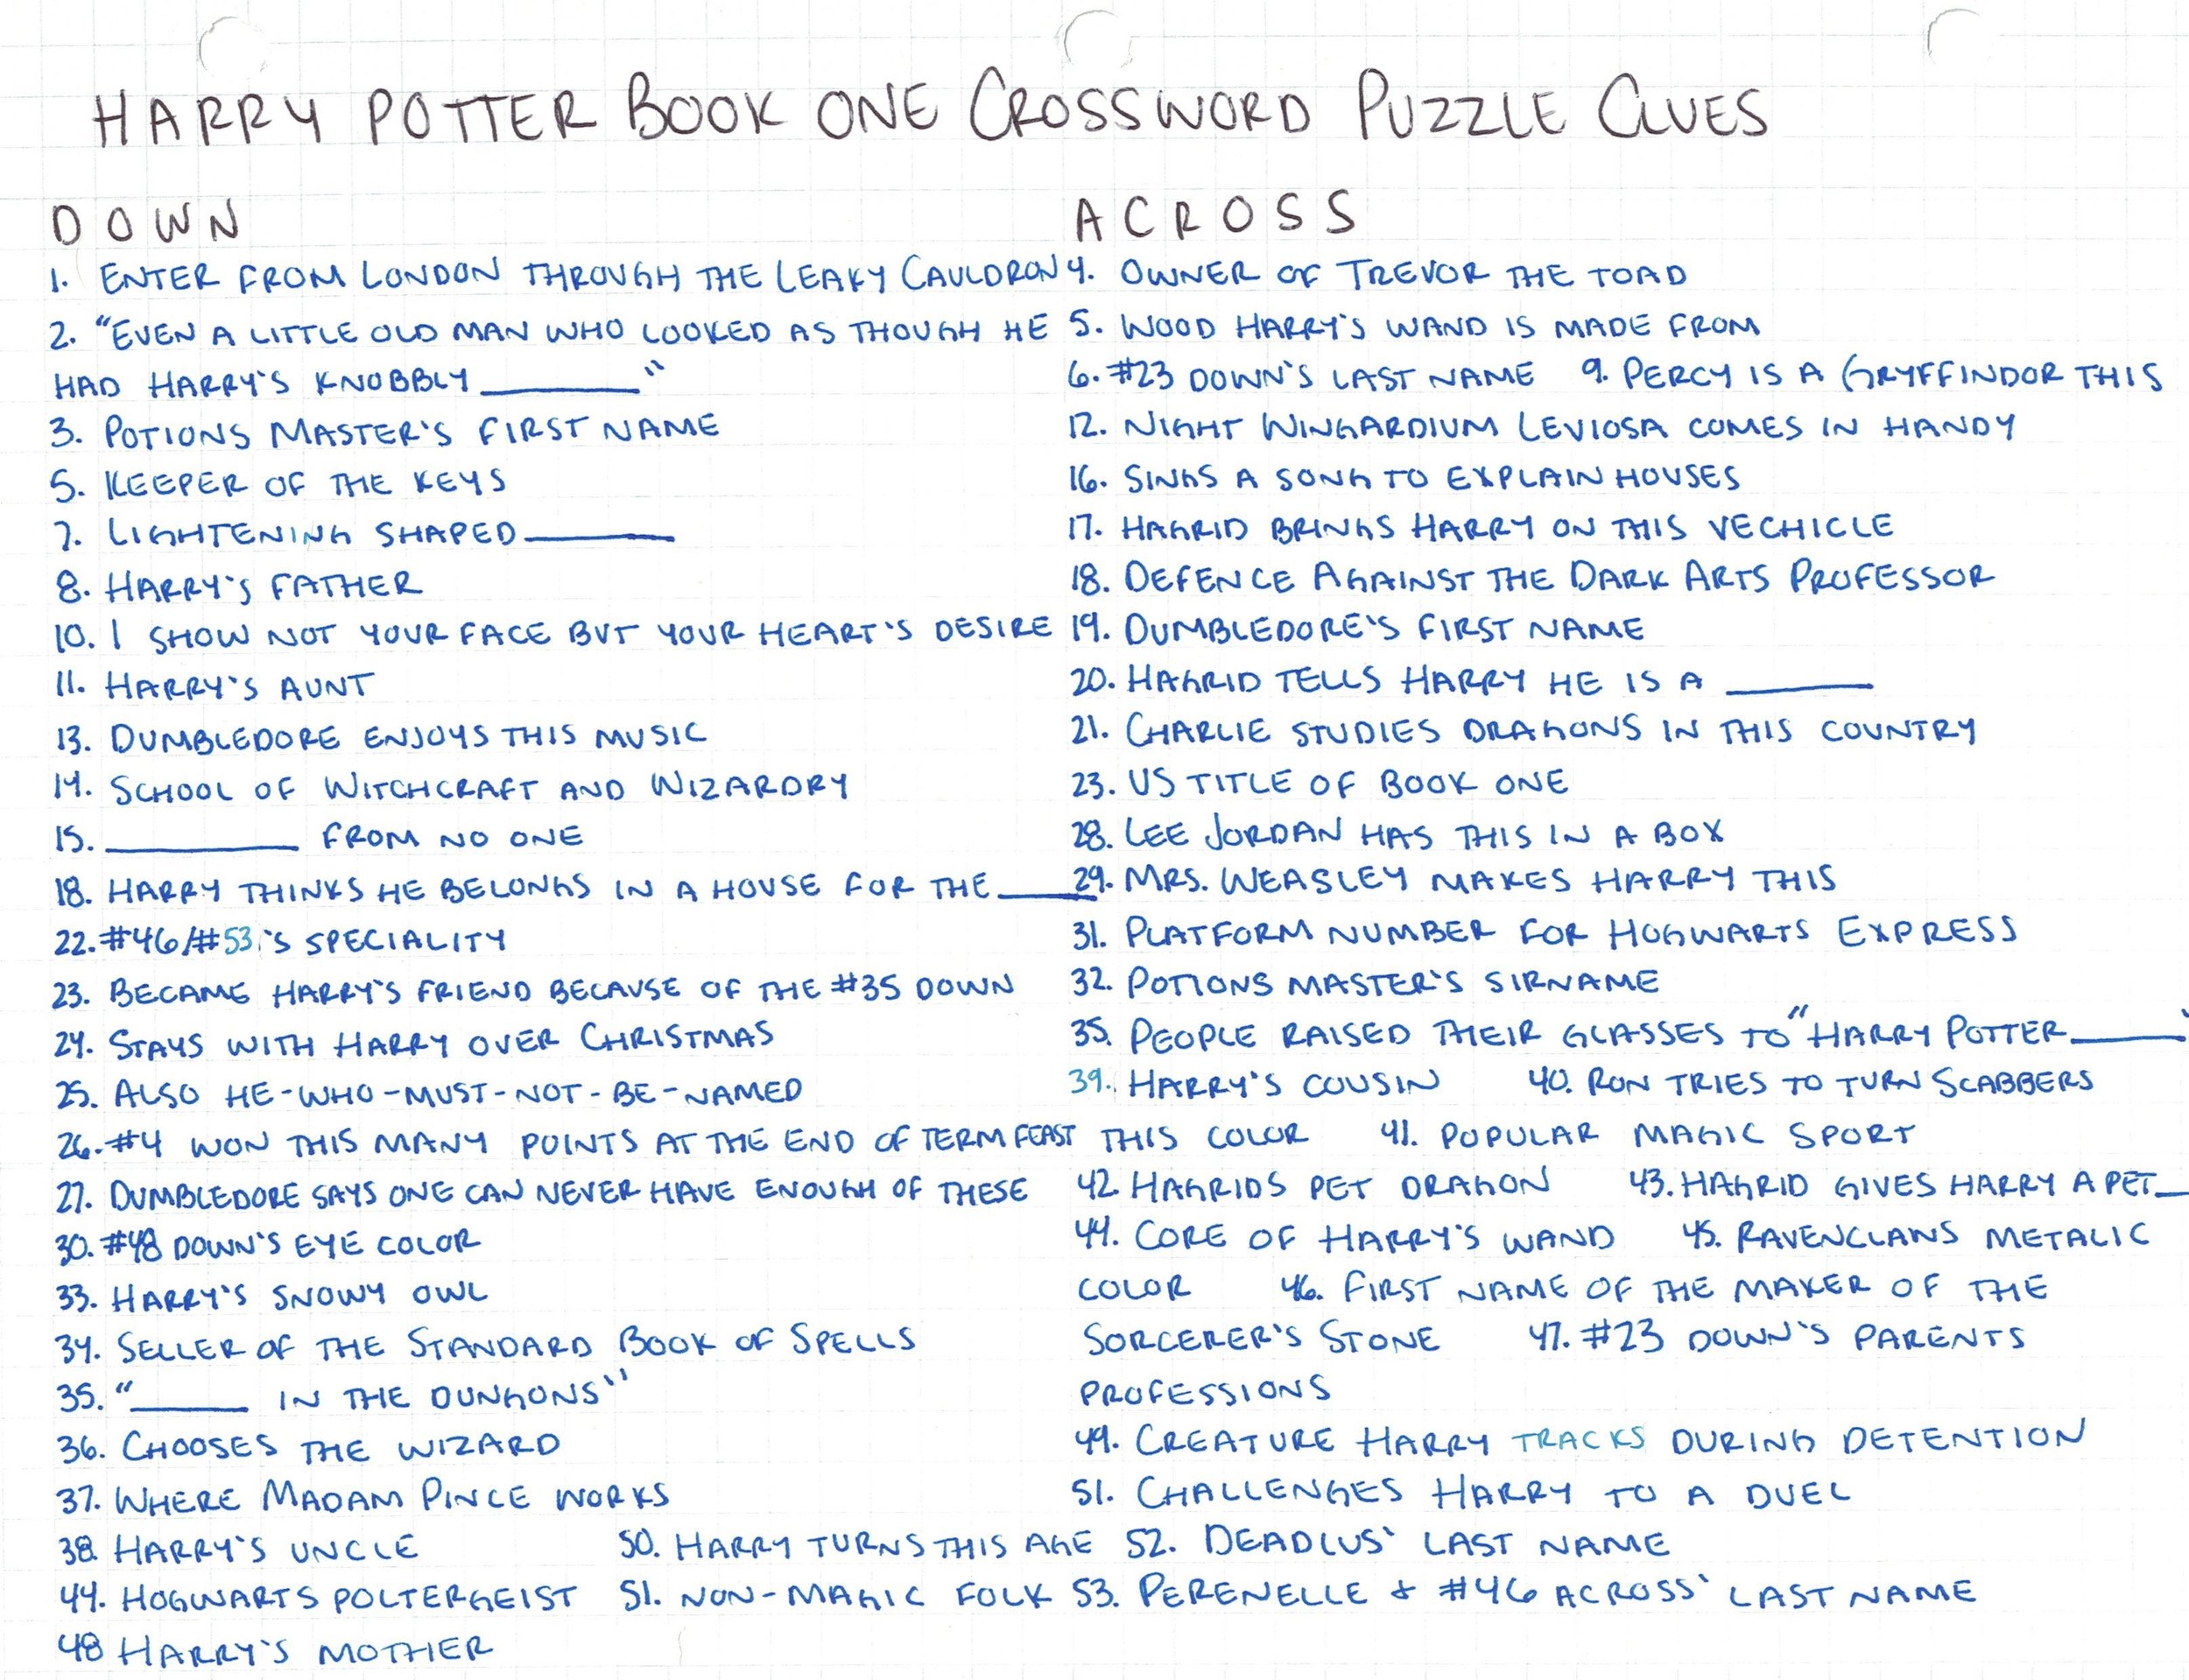 HARRY POTTER BOOK ONE CROSSWORD PUZZLE CLUES
DOWN
1. ENTER FROM LONDON THROUGH THE LEAKY CAULDRON
2. "EVEN A LITTLE OLD MAN WHO LOOKED AS THOUGH HE
HAD HARRY'S KNOBBLY ______"
3. POTIONS MASTER'S FIRST NAME
5. KEEPER OF THE KEYS
7. LIGHTENING SHAPED ______
8. HARRY'S FATHER
10. I SHOW NOT YOUR FACE BUT YOUR HEART'S DESIRE
11. HARRY'S AUNT
13. DUMBLEDORE ENJOYS THIS MUSIC
14. SCHOOL OF WITCHCRAFT AND WIZARDRY
15. ______ FROM NO ONE
18. HARRY THINKS HE BELONGS IN A HOUSE FOR THE ____
22. #46/#53'S SPECIALITY
23. BECAME HARRY'S FRIEND BECAUSE OF THE #35 DOWN
24. STAYS WITH HARRY OVER CHRISTMAS
25. ALSO HE-WHO-MUST-NOT-BE-NAMED
26. #4 WON THIS MANY POINTS AT THE END OF TERM FEAST
27. DUMBLEDORE SAYS ONE CAN NEVER HAVE ENOUGH OF THESE
30. #48 DOWN'S EYE COLOR
33. HARRY'S SNOWY OWL
34. SELLER OF THE STANDARD BOOK OF SPELLS
35. "____ IN THE DUNGONS"
36. CHOOSES THE WIZARD
37. WHERE MADAM PINCE WORKS
38. HARRY'S UNCLE 50. HARRY TURNS THIS AGE
44. HOGWARTS POLTERGEIST 51. NON-MAGIC FOLK
48 HARRY'S MOTHER
ACROSS
4. OWNER OF TREVOR THE TOAD
5. WOOD HARRY'S WAND IS MADE FROM
6. #23 DOWN'S LAST NAME 9. PERCY IS A GRYFFINDOR THIS
12. NIGHT WINGARDIUM LEVIOSA COMES IN HANDY
16. SINGS A SONG TO EXPLAIN HOUSES
17. HAGRID BRINGS HARRY ON THIS VECHICLE
18. DEFENCE AGAINST THE DARK ARTS PROFESSOR
19. DUMBLEDORE'S FIRST NAME
20. HAGRID TELLS HARRY HE IS A ______
21. CHARLIE STUDIES DRAGONS IN THIS COUNTRY
23. US TITLE OF BOOK ONE
28. LEE JORDAN HAS THIS IN A BOX
29. MRS. WEASLEY MAKES HARRY THIS
31. PLATFORM NUMBER FOR HOGWARTS EXPRESS
32. POTIONS MASTER'S SIRNAME
35. PEOPLE RAISED THEIR GLASSES TO "HARRY POTTER ____"
39. HARRY'S COUSIN 40. RON TRIES TO TURN SCABBERS
THIS COLOR 41. POPULAR MAGIC SPORT
42. HAGRIDS PET DRAGON 43. HAGRID GIVES HARRY A PET __
44. CORE OF HARRY'S WAND 45. RAVENCLAWS METALIC
COLOR 46. FIRST NAME OF THE MAKER OF THE
SORCERER'S STONE 47. #23 DOWN'S PARENTS
PROFESSIONS
49. CREATURE HARRY TRACKS DURING DETENTION
51. CHALLENGES HARRY TO A DUEL
52. DEADLUS' LAST NAME
53. PERENELLE & #46 ACROSS' LAST NAME